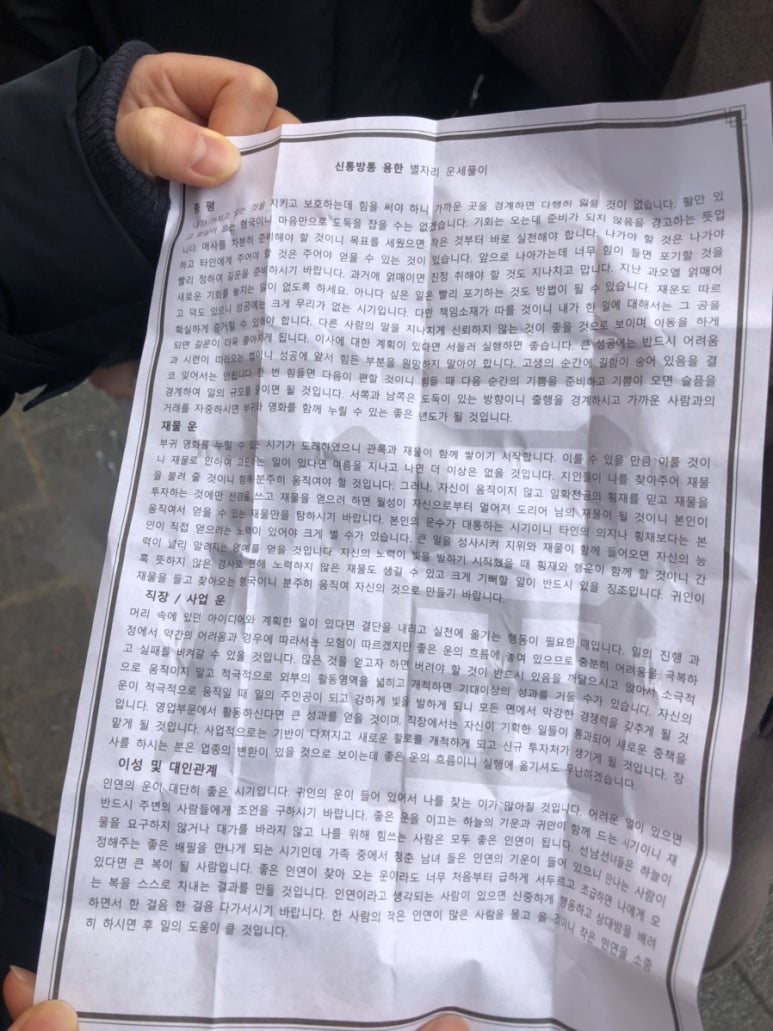 신통방통 용한 별자리 운세풀이
총 평
지키고 보호하는데 힘을 써야 하니 가까운 곳을 경계하면 다행히 잃을 것이 없습니다. 활만 있
형국이니 마음만으로 도둑을 잡을 수는 없겠습니다. 기회는 오는데 준비가 되지 않음을 경고하는 뜻입
니다. 매사를 차분히 준비해야 할 것이니 목표를 세웠으면 작은 것부터 바로 실천해야 합니다. 나가야 할 것은 나가야
하고 타인에게 주어야 할 것은 주어야 얻을 수 있는 것이 있습니다. 앞으로 나아가는데 너무 힘이 들면 포기할 것을
빨리 정하여 길운을 준비하시기 바랍니다. 과거에 얽매이면 진정 취해야 할 것도 지나치고 맙니다. 지난 과오엘 얽매어
새로운 기회를 놓치는 일이 없도록 하세요. 아니다 싶은 일은 빨리 포기하는 것도 방법이 될 수 있습니다. 재운도 따르
고 덕도 있으니 성공에는 크게 무리가 없는 시기입니다. 다만 책임소재가 따를 것이니 내가 한 일에 대해서는 그 공을
확실하게 즐거할 수 있어야 합니다. 다른 사람의 말을 지나치게 신뢰하지 않는 것이 좋을 것으로 보이며 이동을 하게
되면 길운이 더욱 좋아지게 됩니다. 이사에 대한 계획이 있다면 서둘러 실행하면 좋습니다. 큰 성공에는 반드시 어려움
과 시련이 따라오는 법이니 성공에 앞서 힘든 부분을 원망하지 말아야 합니다. 고생의 순간에 길함이 숨어 있음을 결
코 잊어서는 안됩니다 한 번 힘들면 다음이 편할 것이니 힘들 때 다음 순간의 기쁨을 준비하고 기쁨이 오면 슬픔을
경계하여 일의 규모를 줄이면 될 것입니다. 서쪽과 남쪽은 도둑이 있는 방향이니 출행을 경계하시고 가까운 사람과의
거래를 자중하시면 부귀와 영화를 함께 누릴 수 있는 좋은 년도가 될 것입니다.
재물 운
부귀 영화를 누릴 수 있는 시기가 도래하였으니 관록과 재물이 함께 쌓이기 시작합니다. 이룰 수 있을 만큼 이룰 것이
니 재물로 인하여 고민하는 일이 있다면 여름을 지나고 나면 더 이상은 없을 것입니다. 지인들이 나를 찾아주어 재물
을 불려 줄 것이니 함께 분주히 움직여야 할 것입니다. 그러나, 자신이 움직이지 않고 일확천금의 횡재를 믿고 재물을
투자하는 것에만 신경을 쓰고 재물을 얻으려 하면 월성이 자신으로부터 멀어져 도리어 남의 재물이 될 것이니 본인이
움직여서 얻을 수 있는 재물만을 탐하시기 바랍니다. 본인의 운수가 대통하는 시기이니 타인의 의지나 횡재보다는 본
인이 직접 얻으려는 노력이 있어야 크게 벌 수가 있습니다. 큰 일을 성사시켜 지위와 재물이 함께 들어오면 자신의 능
력이 널리 알려지는 명예를 얻을 것입니다. 자신의 노력이 빛을 발하기 시작했을 때 횡재와 행운이 함께 할 것이니 간
혹 뜻하지 않은 경사로 인해 노력하지 않은 재물도 생길 수 있고 크게 기뻐할 일이 반드시 있을 징조입니다. 귀인이
재물을 들고 찾아오는 형국이니 분주히 움직여 자신의 것으로 만들기 바랍니다.
직장 / 사업 운
머리 속에 있던 아이디어와 계획한 일이 있다면 결단을 내리고 실천에 옮기는 행동이 필요한 때입니다. 일의 진행 과
정에서 약간의 어려움과 경우에 따라서는 모험이 따르겠지만 좋은 운의 흐름에 놓여 있으므로 충분히 어려움을 극복하
고 실패를 비켜갈 수 있을 것입니다. 많은 것을 얻고자 하면 버려야 할 것이 반드시 있음을 깨달으시고 앉아서 소극적
으로 움직이지 말고 적극적으로 외부의 활동영역을 넓히고 개척하면 기대이상의 성과를 거둘 수가 있습니다. 자신의
운이 적극적으로 움직일 때 일의 주인공이 되고 강하게 빛을 발하게 되니 모든 면에서 막강한 경쟁력을 갖추게 될 것
입니다. 영업부문에서 활동하신다면 큰 성과를 얻을 것이며, 직장에서는 자신이 기획한 일들이 통과되어 새로운 중책을
맡게 될 것입니다. 사업적으로는 기반이 다져지고 새로운 활로를 개척하게 되고 신규 투자처가 생기게 될 것입니다. 장
사를 하시는 분은 업종의 변환이 있을 것으로 보이는데 좋은 운의 흐름이니 실행에 옮기셔도 무난하겠습니다.
이성 및 대인관계
인연의 운이 대단히 좋은 시기입니다. 귀인의 운이 들어 있어서 나를 찾는 이가 많아질 것입니다. 어려운 일이 있으면
반드시 주변의 사람들에게 조언을 구하시기 바랍니다. 좋은 운을 이끄는 하늘의 기운과 귀인이 함께 드는 시기이니 재
물을 요구하지 않거나 대가를 바라지 않고 나를 위해 힘쓰는 사람은 모두 좋은 인연이 됩니다. 선남선녀들은 하늘이
정해주는 좋은 배필을 만나게 되는 시기인데 가족 중에서 청춘 남녀 들은 인연의 기운이 들어 있으니 만나는 사람이
있다면 큰 복이 될 사람입니다. 좋은 인연이 찾아 오는 운이라도 너무 처음부터 급하게 서두르고 조급하면 나에게 오
는 복을 스스로 차내는 결과를 만들 것입니다. 인연이라고 생각되는 사람이 있으면 신중하게 행동하고 상대방을 배려
하면서 한 걸음 한 걸음 다가서시기 바랍니다. 한 사람의 작은 인연이 많은 사람을 몰고 올 것이니 작은 인연을 소중
히 하시면 후 일의 도움이 클 것입니다.